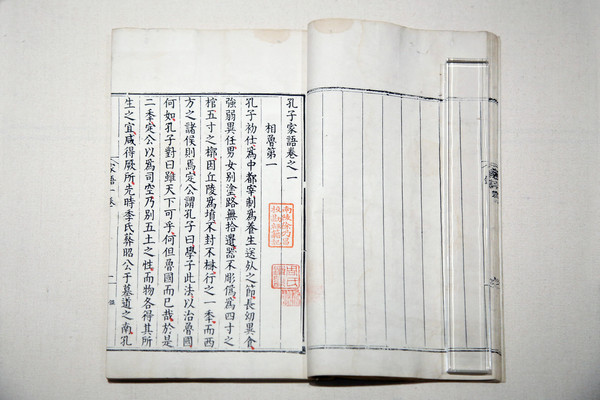 孔子家語卷之一
相魯第一
孔子初仕爲中都宰制爲養生送死之節長幼異食
強弱異任男女別塗路無拾遺器不彫僞爲四寸之
棺五寸之槨因丘陵爲墳不封不樹行之一季而西
方之諸侯則焉定公謂孔子曰學子此法以治魯國
何如孔子對曰雖天下可乎何但魯國而已哉於是
二季定公以爲司空乃別五土之性而物各得其所
生之宜咸得厥所先時季氏葬昭公于墓道之南孔
家語一卷